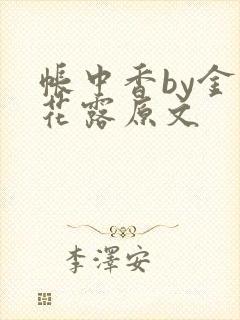 帳中香by金
花露原文
李澤安